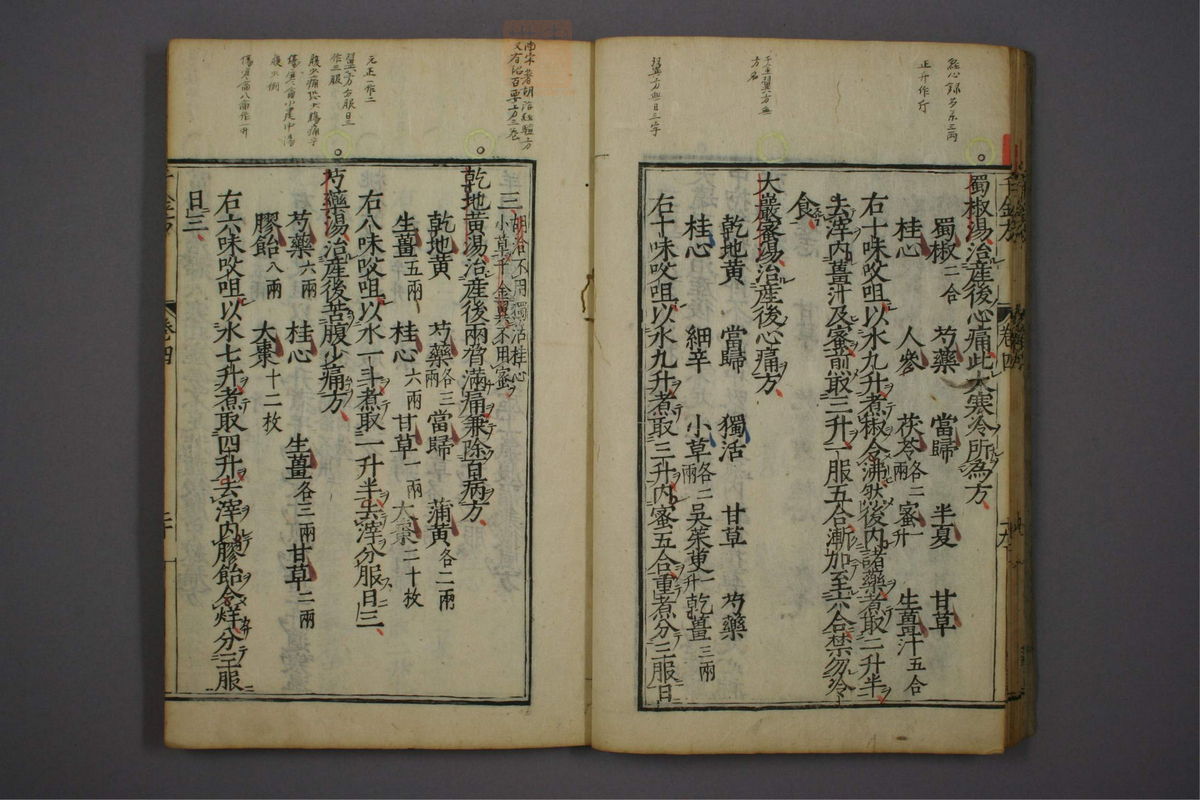 蜀椒湯治産後心痛此大寒冷所為方
蜀椒二合 芍藥 當歸 半夏 甘草
桂心 人參 茯苓各二兩 蜜一升 生薑汁五合
右十味㕮咀以水九升煮椒令沸然後内諸藥煮取二升半
去滓内薑汁及蜜煎取三升一服五合漸加至六合禁勿冷
食
大巖蜜湯治産後心痛方
乾地黄 當歸 獨活 甘草 芍藥
桂心 細辛 小草各二兩 吳茱萸一升 乾薑三兩
右十味㕮咀以水九升煮取三升内蜜五合重煮分三服日
三胡洽不用獨活桂心
小草千金翼不用蜜
乾地黄湯治産後兩脅滿痛兼除百病方
乾地黄 芍藥各三兩 當歸 蒲黄各二兩
生薑五兩 桂心六兩 甘草一兩 大棗二十枚
右八味㕮咀以水一斗煮取二升半去滓分服日三
芍藥湯治産後苦腹少痛方
芍藥六兩 桂心 生薑各三兩 甘草二兩
膠飴八兩 大棗十二枚
右六味㕮咀以水七升煮取四升去滓内膠飴令烊分三服
日三
千金方
卷四
翼方無日三字
正升作斤